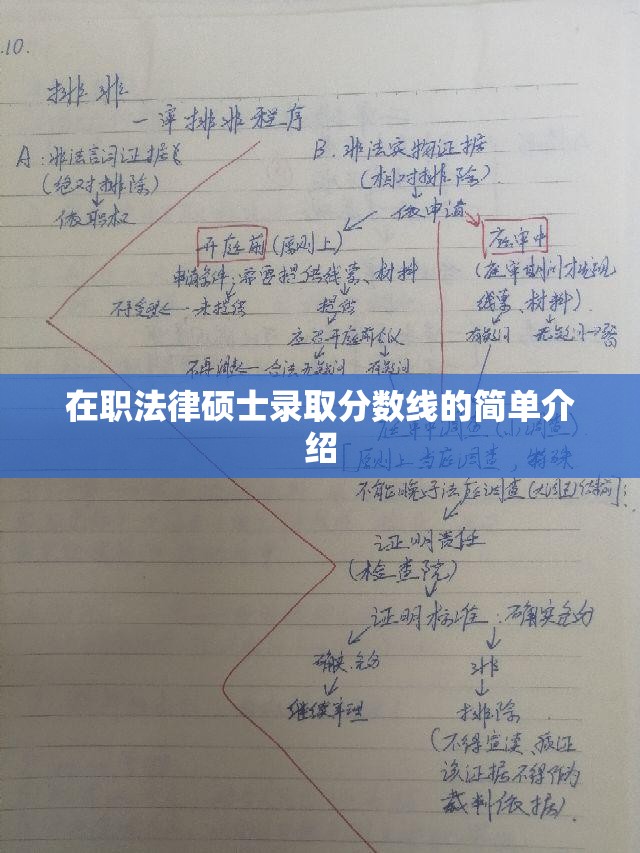 .10.
排非
一审排非程序
A：非法言词证据
（绝对排除）
依职权
B. 非法实物证据
（相对排除）
依申请
开庭前（原则上）
申请条件：需要提供线索、材料
不受理←未提供
提供
应召开庭前会议
合法无疑问 有疑问
庭审中
（庭审期间才发现
线索、材料）
有疑问 无疑问→驳
在职法律硕士录取分数线的简单介
绍
庭审中调查（先调查）
「原则上当庭调查，特殊
不能晚于法庭调查（大调查）结束前」；
证明责任
（检查院）
证明标准：确实充分
确实充分
继续审理
非
排除
（不得宣读、质证
该证据不得作为
裁判依据）.